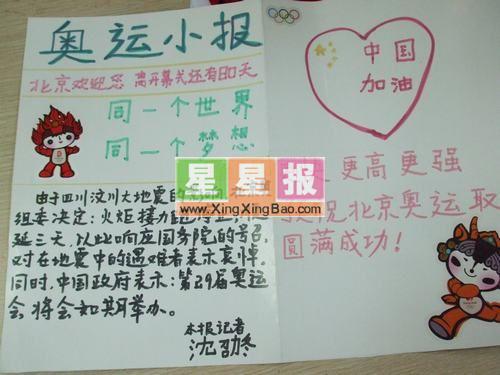 奥运小报
北京欢迎您 离开幕式还有80天
同一个世界
同一个梦想
由于四川汶川大地震的
组委决定:火炬接力
延三天,以此响应国务院的号召,
对在地震中的遇难者表示哀悼。
同时,中国政府表示:第29届奥运
会将会如期举办。
本报记者
沈
中国
加油
更高更强
祝北京奥运取
圆满成功!
星星报
www.XingXingBao.com